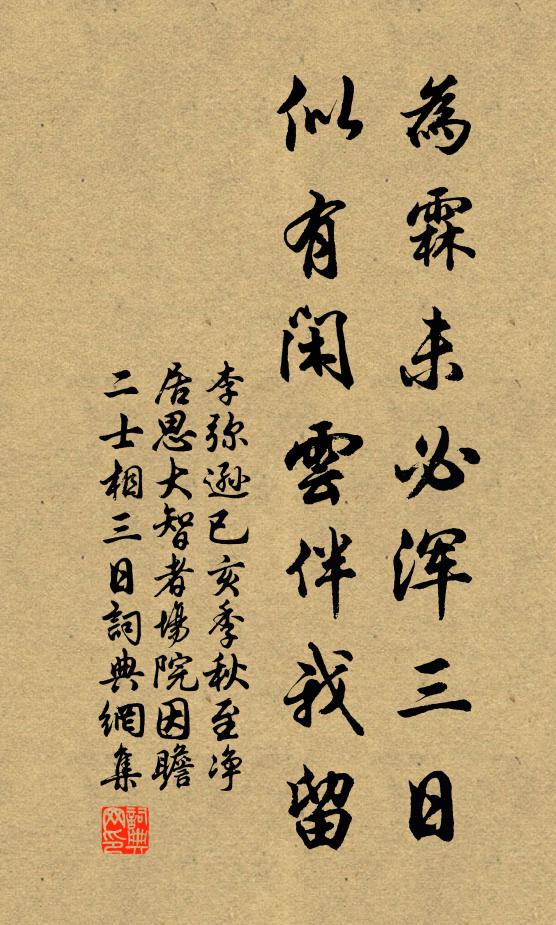 為霖未必浑三日
似有閑雲伴我留
李弥遜已亥季秋至净
居思大智者塲院因瞻
二士相三日詞典網集
詞典
网印